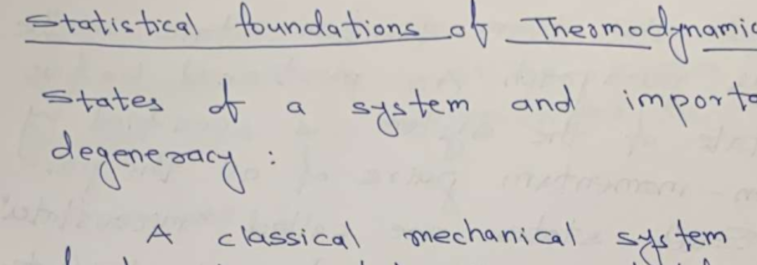 Statistical foundations of Thermodynamic
States of a system and importa
degeneracy :
A classical mechanical system